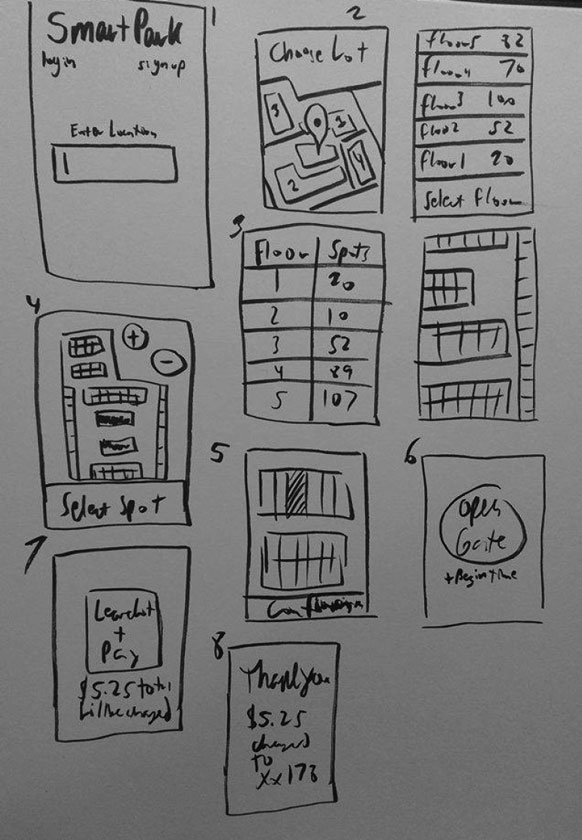 1
SmartPark
login
signup
Enter Location
2
Choose Lot
3
3
4
2
floor5 32
floor4 70
floor3 100
floor2 52
floor1 20
Select floor
3
Floor Spots
1 20
2 10
3 52
4 89
5 107
4
+
-
Select Spot
5
6
open
Gate
+Begin time
7
+
Pay
$5.25 total
charged
8
Thank you
$5.25
charged
to
xx173